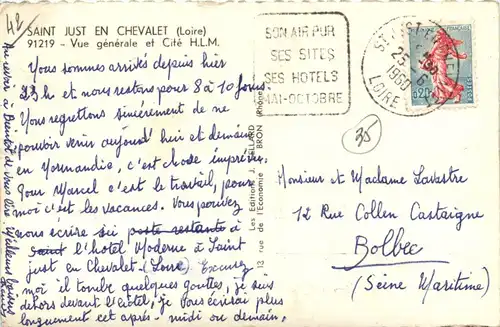 42
SAINT JUST EN CHEVALET (Loire)
91219 - Vue générale et Cité H.L.M.
Nous sommes arrivés depuis hier
23h et nous restons pour 8 à 10 jours.
Nous regrettons sincèrement de ne
pouvoir venir aujourd'hui et demain
en Normandie, c'est chose imprévue.
Pour Marcel c'est le travail, pour
moi c'est les vacances. Vous pouvez
nous écrire soi poste restante à
Saint l'hotel Moderne à Saint
just en Chevalet (Loire) Excusez
moi il tombe quelques gouttes, je suis
dehors devant l'hôtel, je vous écrirai plus
longuement cet après-midi ou demain,
Au revoir à
Bientôt de vous lire. Meilleurs baisers
Les Editions J. CELLARD
13 rue de l'Economie BRON (Rhône)
SON AIR PUR
SES SITES
SES HOTELS
MAI-OCTOBRE
ST JUST-EN-CHEVALET
25 - 6
1960
LOIRE
0,20
35
Monsieur et Madame Lavastre
12 Rue Collen Castaigne
Bolbec
(Seine Maritime)